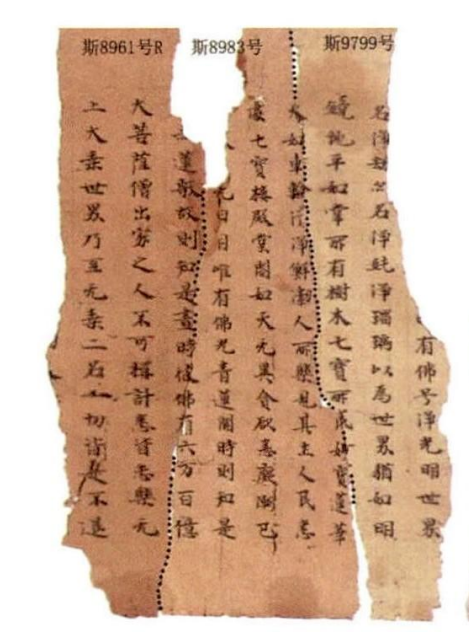 斯8961号R 斯8983号 斯9799号
有佛号淨光明世界
名淨 名淨 淨瑠璃以為世界猶如明
鏡地平如掌所有樹木七寶所成 寶蓮華
大如車輪清淨鮮潔人所樂見其土人民悉
處七寶樓殿堂閣如天无異貪欲恚癡 已
日月唯有佛光青蓮開時則知是
蓮 故則知是晝時彼佛有六万百億
大菩薩僧出家之人不可稱計悉皆志樂无
上大乘世界乃至无乘二名一切皆是不退